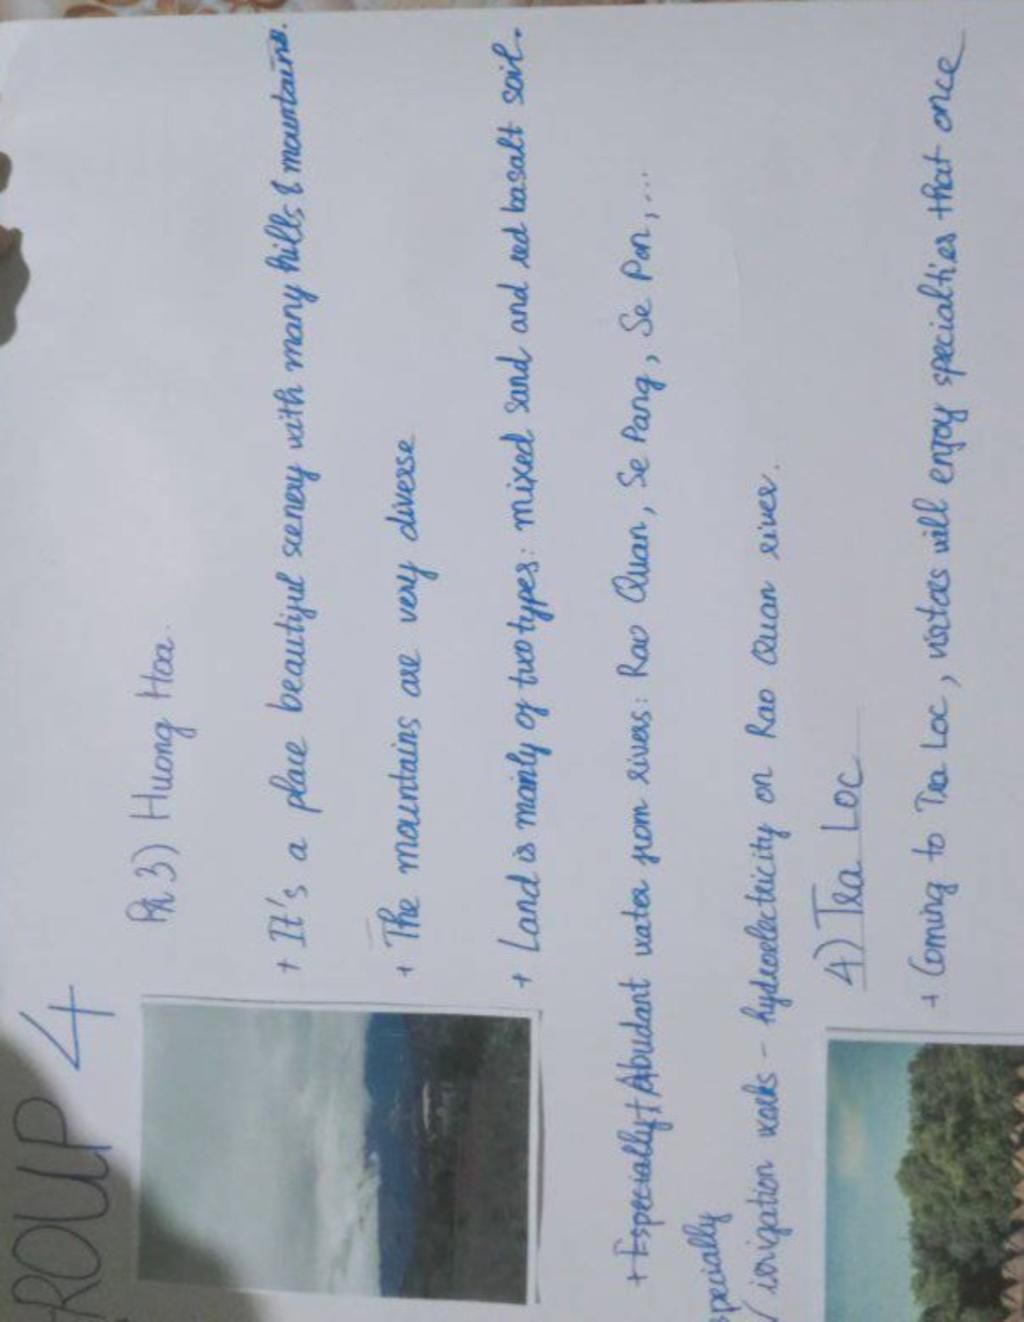 GROUP 4
3) Huong Hoa.
+ It's a place beautiful scenery with many hills & mountains.
+ The mountains are very diverse
+ Land is mainly of two types: mixed sand and red basalt soil.
+ Especially + Abudant water from rivers: Rao Quan, Se Pang, Se Pon, ...
specially
irrigation woks - hydroelectricity on Rao Quan river.
4) Tra Loc
+ Coming to Tra Loc, vistors will enjoy specialties that once